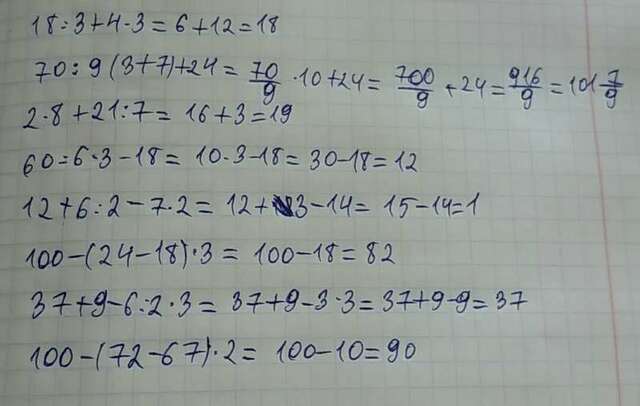 18:3+4·3=6+12=18
70:9(3+7)+24=70/9·10+24=700/9+24=916/9=101 7/9
2·8+21:7=16+3=19
60:6·3-18=10·3-18=30-18=12
12+6:2-7·2=12+3-14=15-14=1
100-(24-18)·3=100-18=82
37+9-6:2·3=37+9-3·3=37+9-9=37
100-(72-67)·2=100-10=90